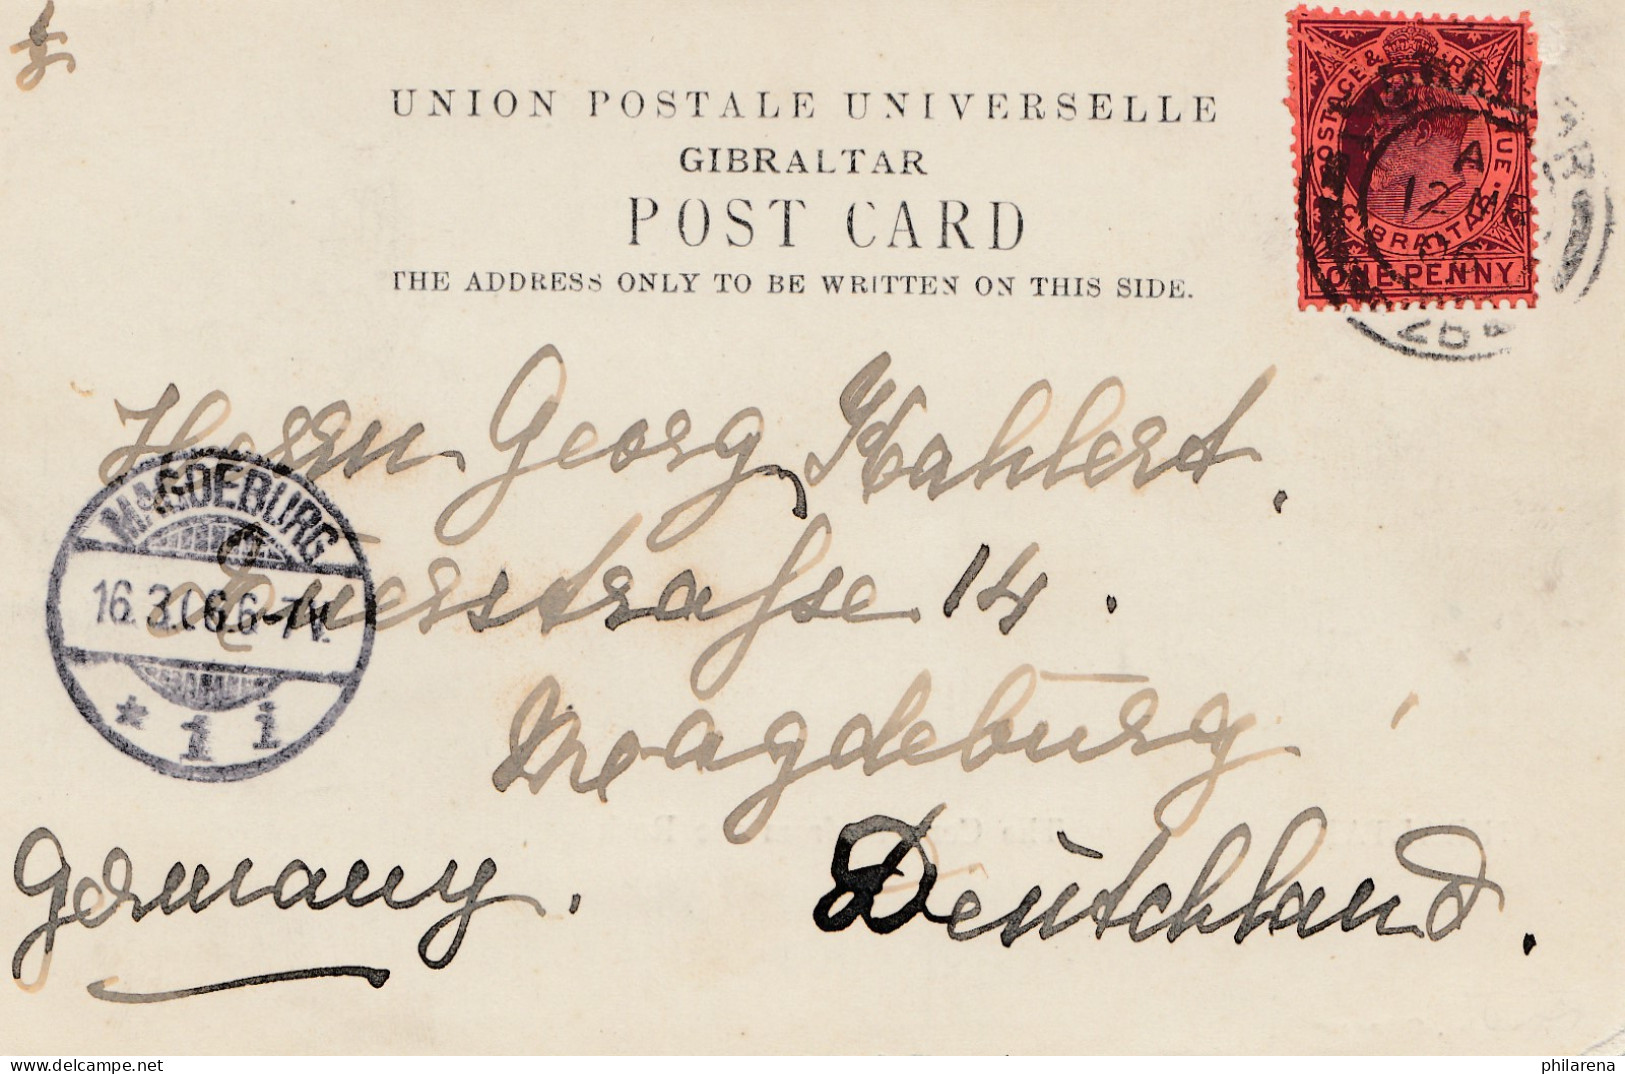 UNION POSTALE UNIVERSELLE
GIBRALTAR
POST CARD
THE ADDRESS ONLY TO BE WRITTEN ON THIS SIDE.
POSTAGE & REVENUE
GIBRALTAR
ONE PENNY
A
12
06
Herrn Georg Kahlert.
MAGDEBURG
16.3.06.6-7V.
* 1 1
straße 14.
Magdeburg
Germany.
Deutschland.
philarena